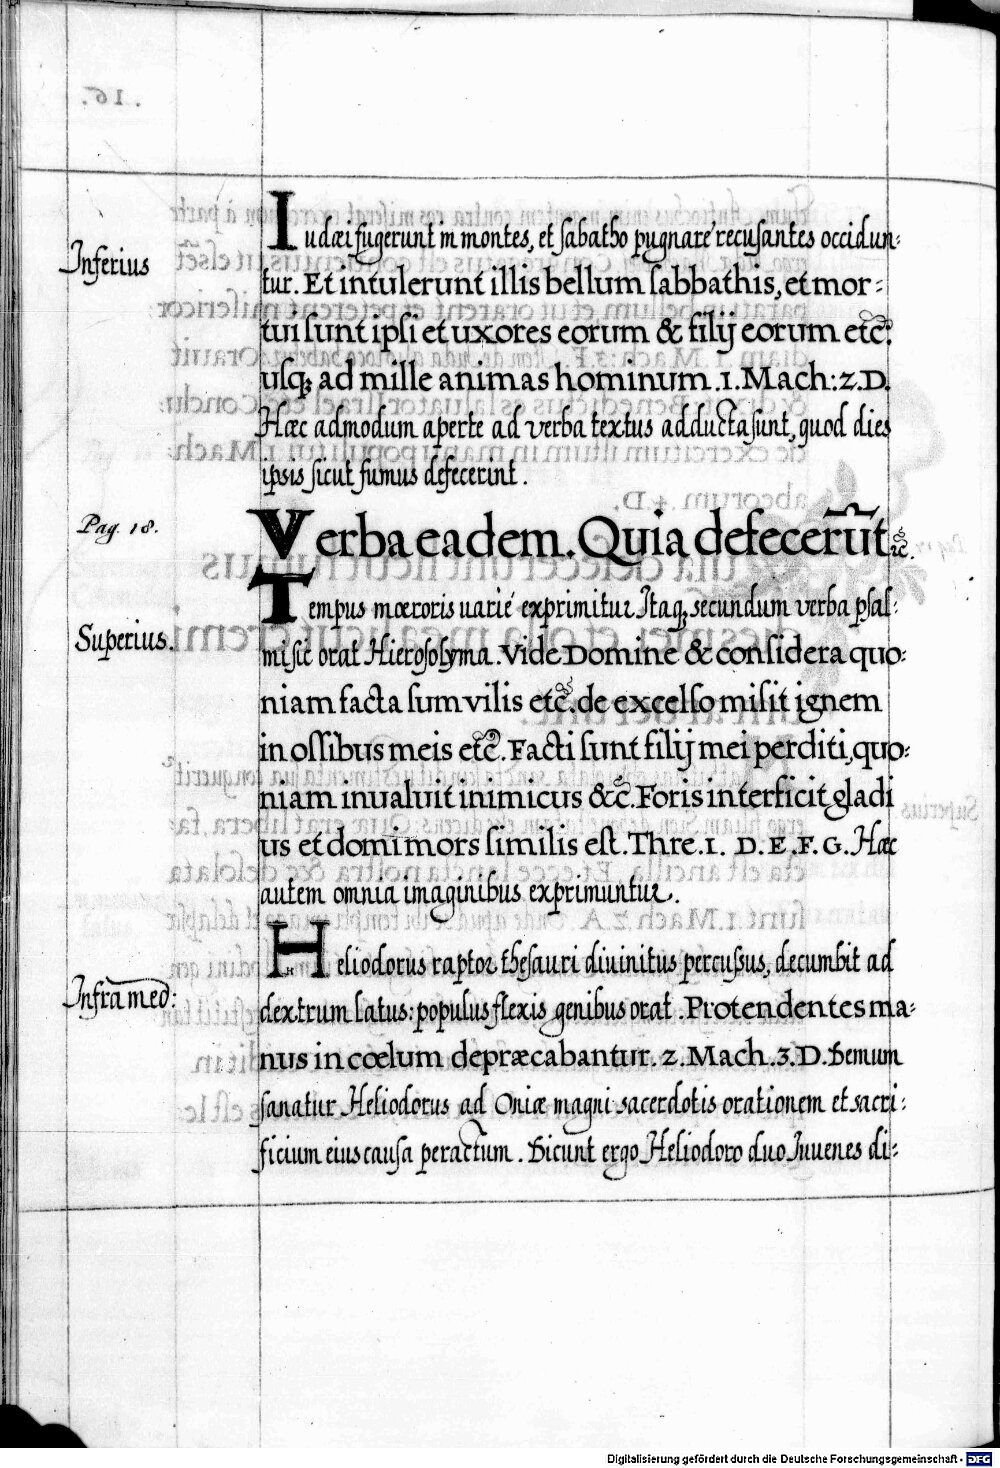 Inferius
Iudæi fugerunt in montes, et sabatho pugnare recusantes occidun-
tur. Et intulerunt illis bellum sabbathis, et mor-
tui sunt ipsi et uxores eorum & filij eorum etc̃.
usq3 ad mille animas hominum .1. Mach: 2. D.
Hæc admodum aperte ad verba textus adducta sunt, quod dies
ipsis sicut fumus defecerint.
Pag. 18.
Verba eadem. Quia defecerũt ꝛc.
Superius.
Tempus mœroris uarie exprimitur Itaq3 secundum verba psal-
mi sic orat Hierosolyma. Vide Domine & considera quo-
niam facta sum vilis etc̃. de excelso misit ignem
in ossibus meis etc̃. Facti sunt filij mei perditi, quo-
niam inualuit inimicus &c̃. Foris interficit gladi
us et domi mors similis est. Thre. 1. D. E. F. G. Hæc
autem omnia imaginibus exprimuntur.
Infra med:
Heliodorus raptor thesauri diuinitus percussus, decumbit ad
dextrum latus: populus flexis genibus orat. Protendentes ma-
nus in cœlum depræcabantur. 2. Mach. 3. D. Demum
sanatur Heliodorus ad Oniæ magni sacerdotis orationem et sacri-
ficium eius causa peractum. Dicunt ergo Heliodoro duo Iuuenes di-
.16.
Digitalisierung gefördert durch die Deutsche Forschungsgemeinschaft - DFG